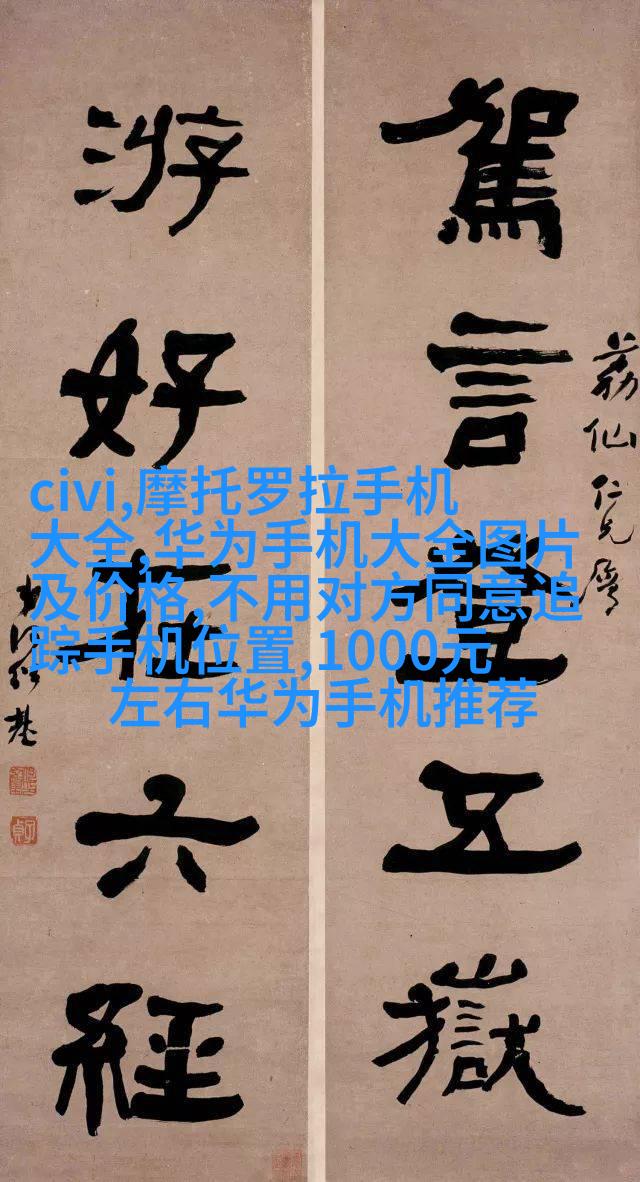 荔仙仁兄屬
駕言登五嶽
游好在六經
弟何紹基
子貞
civi,摩托罗拉手机
大全,华为手机大全图片
及价格,不用对方同意追
踪手机位置,1000元
左右华为手机推荐